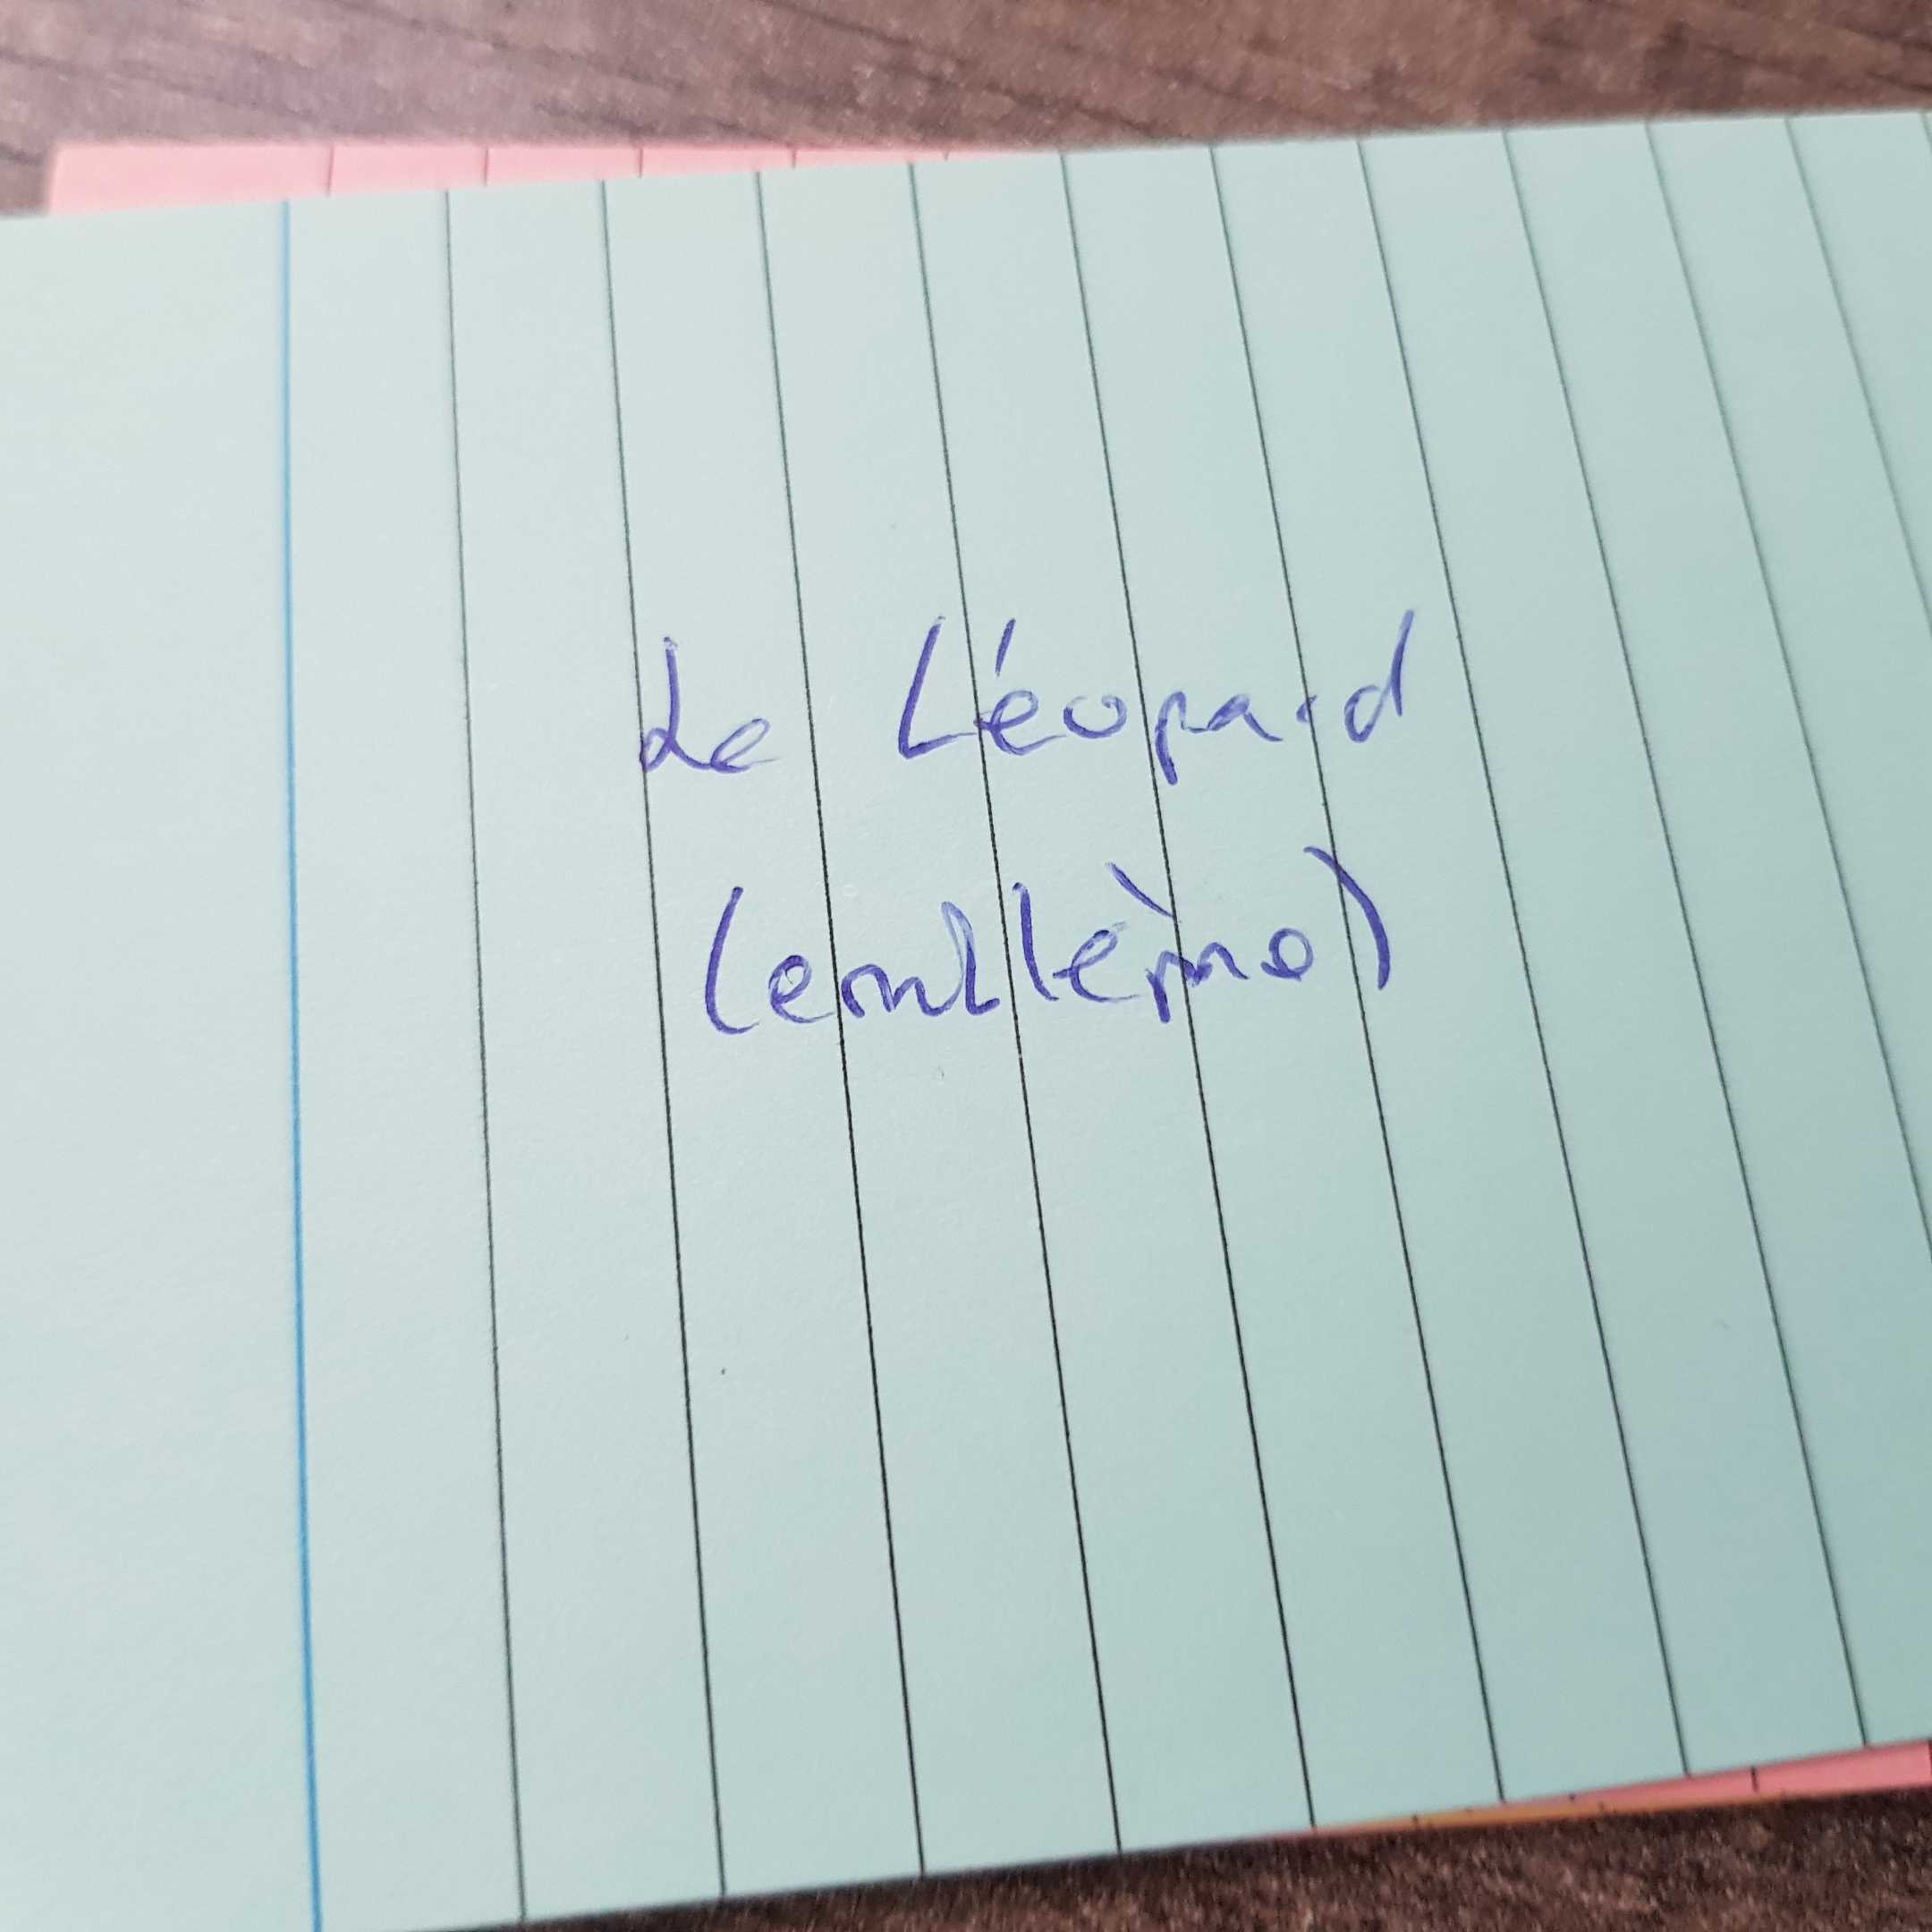 Le Léopard
(emblème)